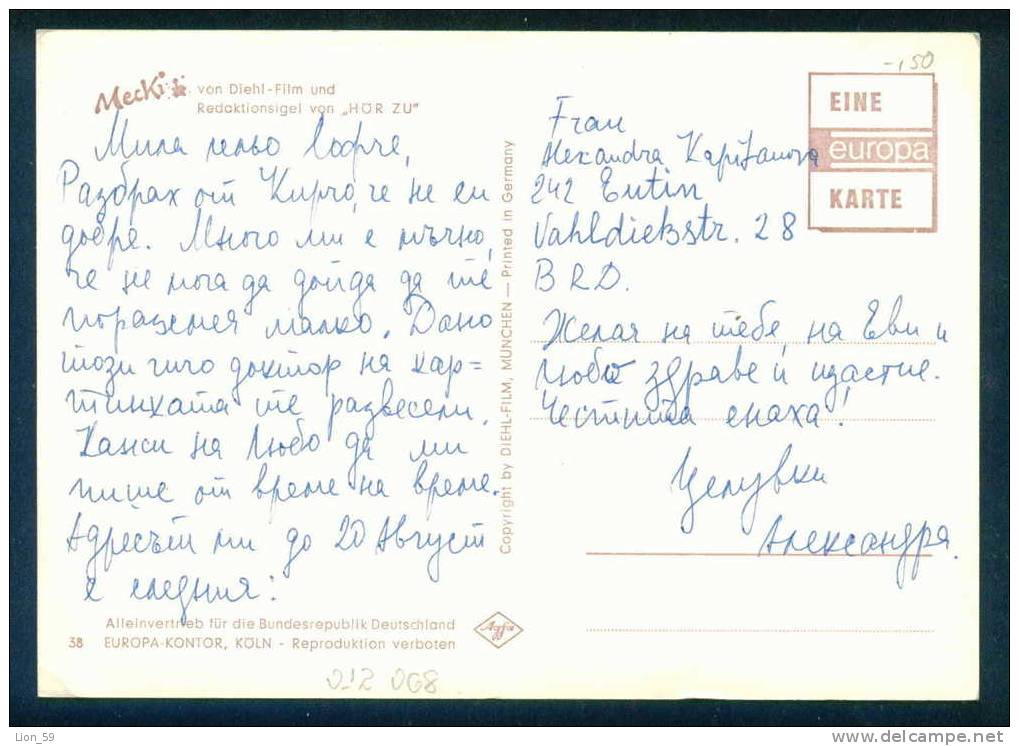 -,50
Mecki
von Diehl-Film und
Redaktionsigel von „HÖR ZU"
Мила лельо Софче,
Разбрах от Кирчо, че не си
добре. Много ми е мъчно,
че не мога да дойда да те
поразсмея малко. Дано
този чичо доктор на кар=
тинката те развесели.
Кажи на Любо да ми
пише от време на време.
Адресът ми до 20 Август
е следния:
Frau
Alexandra Kapitanova
242 Eutin
Vahldiekstr. 28
BRD.
EINE
europa
KARTE
Желая на тебе, на Еви и
Любо здраве и щастие.
Честита снаха!
Целувки
Александра.
Copyright by DIEHL-FILM, MÜNCHEN — Printed in Germany
Alleinvertrieb für die Bundesrepublik Deutschland
38 EUROPA-KONTOR, KÖLN - Reproduktion verboten
Agfa
012 068
Lion_59
www.delcampe.net